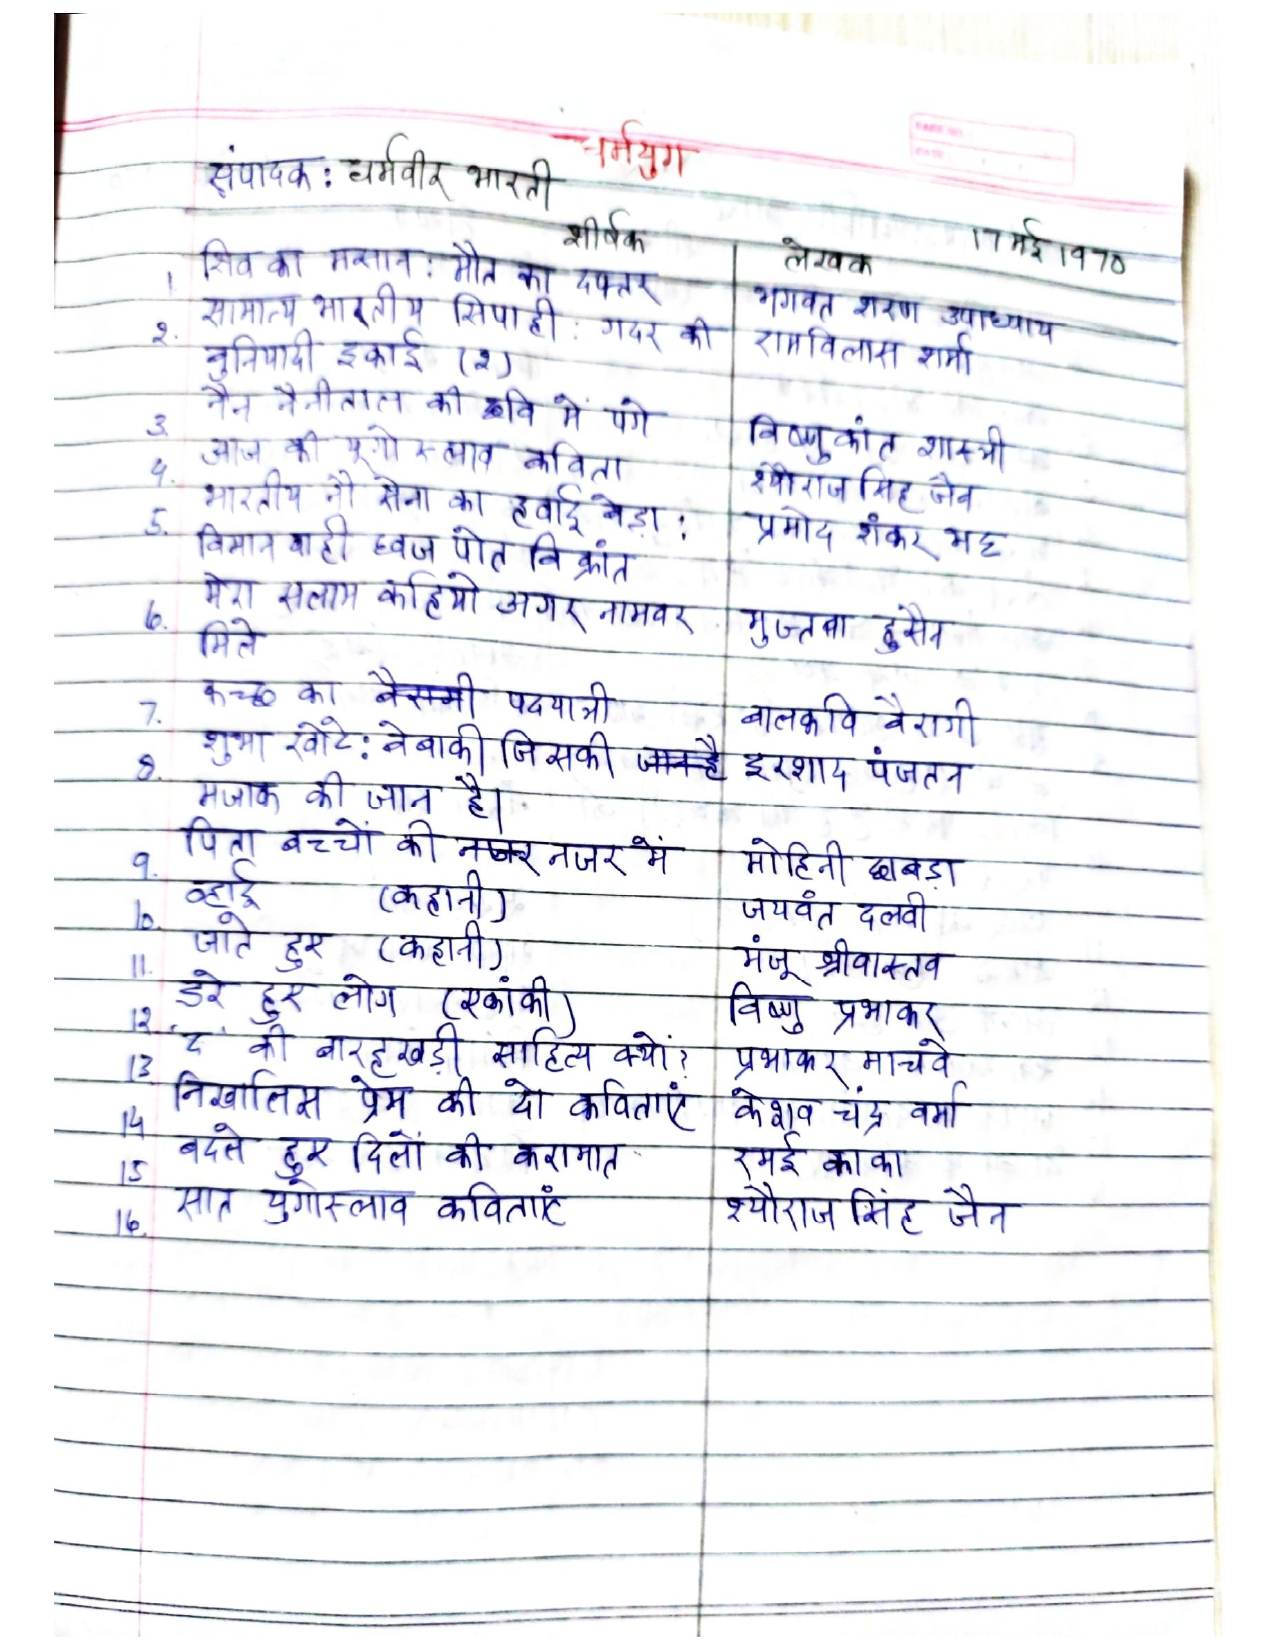 धर्मयुग
संपादक: धर्मवीर भारती
17 मई 1970
शीर्षक लेखक
1. शिव का मसान: मौत का दफ्तर भगवत शरण उपाध्याय
2. सामान्य भारतीय सिपाही: गदर की रामविलास शर्मा
बुनियादी इकाई (२)
3. नैन नैनीताल की छवि में पगे विष्णुकांत शास्त्री
4. आज की यूगोस्लाव कविता श्यौराज सिंह जैन
5. भारतीय नौ सेना का हवाई बेड़ा: प्रमोद शंकर भट्ट
विमान वाही ध्वज पोत विक्रांत
6. मेरा सलाम कहियो अगर नामवर मुज्तबा हुसैन
मिले
7. कच्छ का पदयात्री बालकवि बैरागी
8. शुभा खोटे: बेबाकी जिसकी इरशाद पंजतन
मजाक की जान है।
9. पिता बच्चों की नजर में मोहिनी छाबड़ा
10. व्हाई (कहानी) जयवंत दलवी
11. जाते हुए (कहानी) मंजू श्रीवास्तव
12. डरे हुए लोग (एकांकी) विष्णु प्रभाकर
13. 'द' की बारहखड़ी साहित्य क्यों? प्रभाकर माचवे
14. निखालिस प्रेम की दो कविताएं केशव चंद्र वर्मा
15. बदले हुए दिलों की करामात रमई काका
16. सात युगोस्लाव कविताएं श्यौराज सिंह जैन